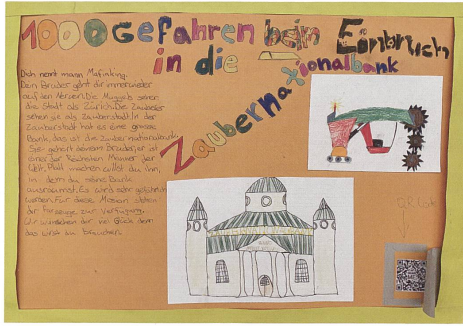 1000 Gefahren beim Einbruch
in die
Zaubernationalbank
Dich nennt mann Mafinking.
Dein Bruder geht dir immer wieder
auf den Nerven. Die Muggels sehen
die Stadt als Zürich. Die Zauberer
sehen sie als Zauberstadt. In der
Zauberstadt hat es eine grosse
Bank, das ist die Zaubernationalbank.
Sie gehört deinem Bruder, er ist
einer der Reichsten Männer der
Welt. Platt machen willst du ihn,
in dem du seine Bank
ausraumst. Es wird sehr gefährlich
werden. Für diese Mission stehen
dir Fahrzeuge zur Verfügung.
Wir wünschen dir viel Glück, denn
das wirst du brauchen.
QR Link